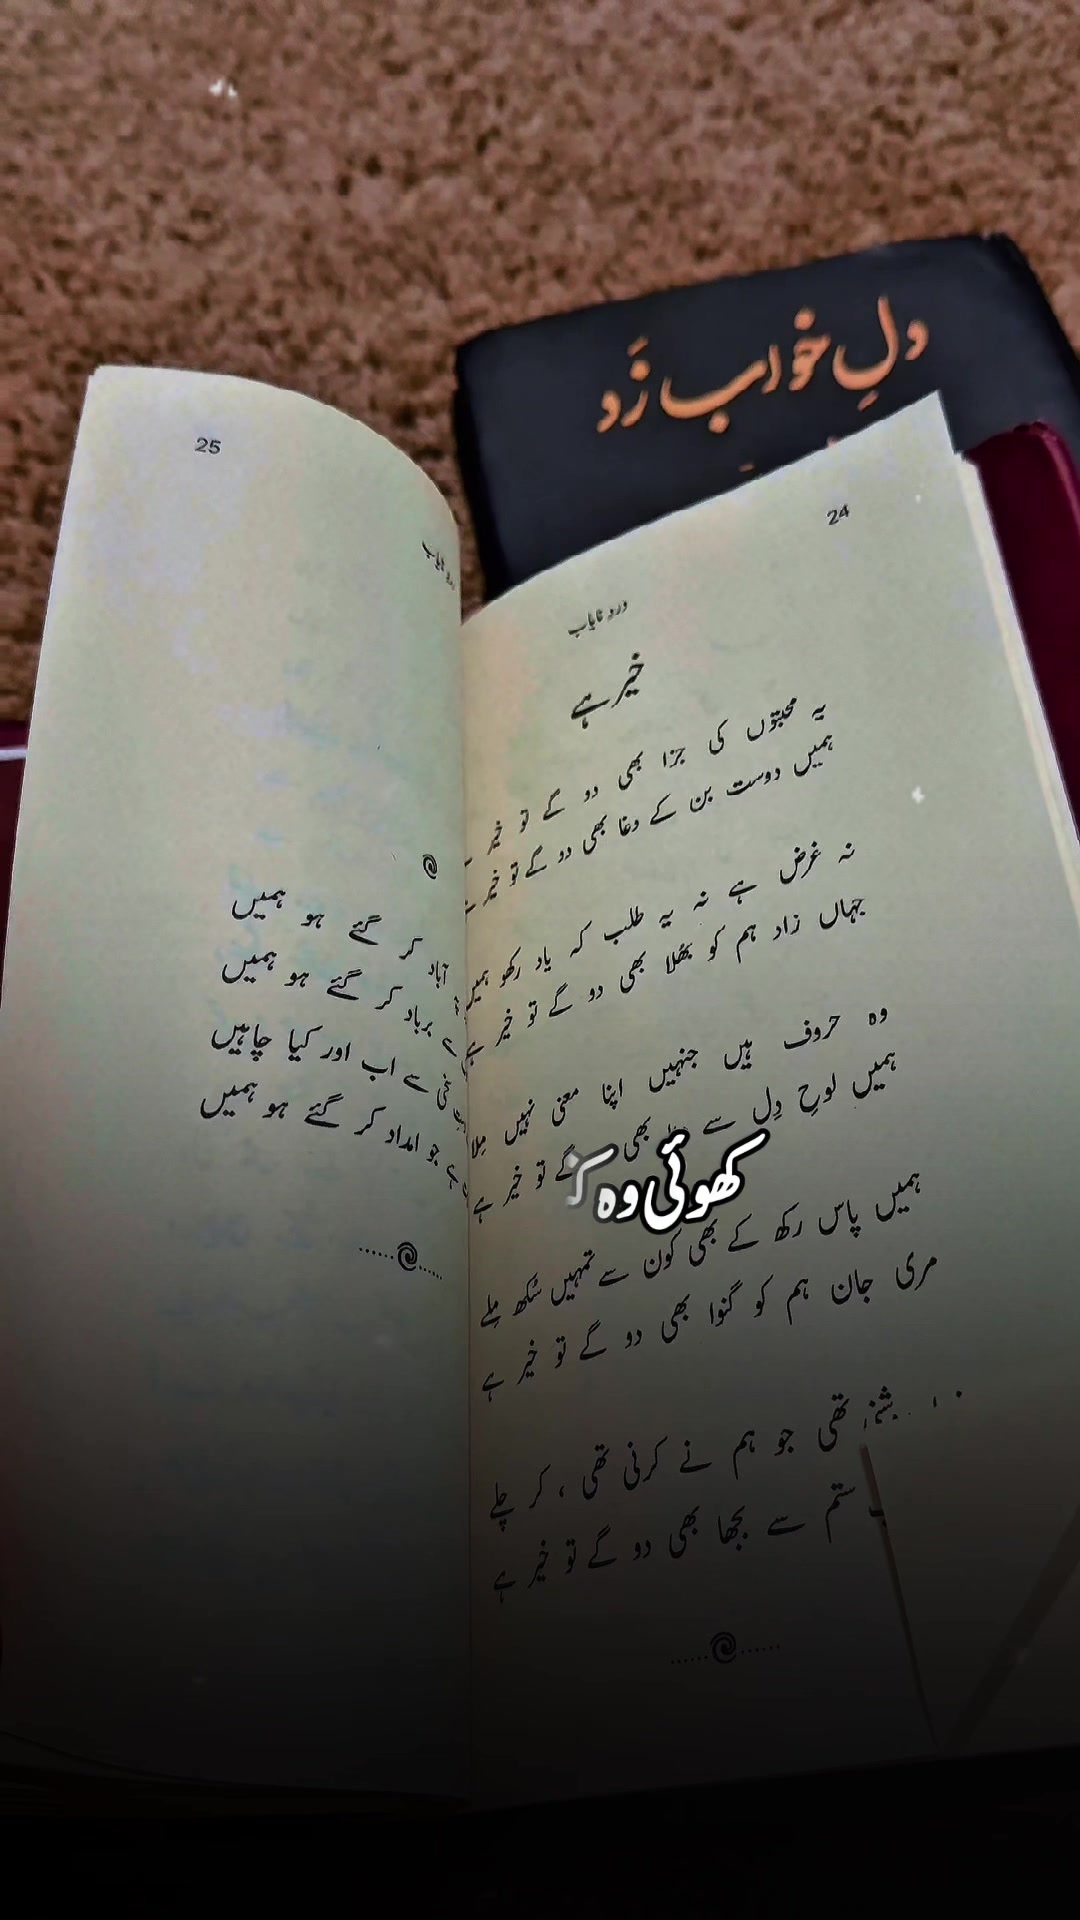 دلِ خواب زَد
24
درد نایاب
خیر ہے
یہ محبتوں کی جزا بھی دو گے تو خیر
ہمیں دوست بن کے دغا بھی دو گے تو خیر
نہ غرض ہے نہ یہ طلب کہ یاد رکھو ہمیں
جہاں زاد ہم کو بھُلا بھی دو گے تو خیر ہے
وہ حروف ہیں جنہیں اپنا معنی نہیں مِلا
ہمیں لوحِ دِل سے بھی گے تو خیر ہے
کھوئی وہ
ہمیں پاس رکھ کے بھی کون سے تمہیں سُکھ مِلے
مری جان ہم کو گنوا بھی دو گے تو خیر ہے
تھی جو ہم نے کرنی تھی ، کر چلے
ستم سے بجھا بھی دو گے تو خیر ہے
25
درد نایاب
آباد کر گئے ہو ہمیں
برباد کر گئے ہو ہمیں
سے اب اور کیا چاہیں
جو امداد کر گئے ہو ہمیں